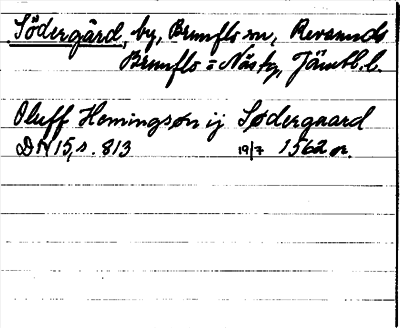 Södergård, by, Brunflo sn, Revsunds
Brunflo o Näs tg, Jämtl. l.
Oluff Hemingsøn ij Södergaard
DN 15, s. 813 19/7 1562 or.